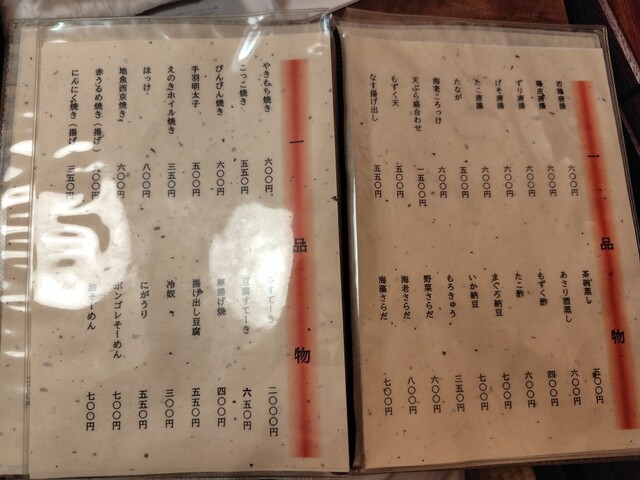 一品物
若鶏唐揚 六〇〇円
鶏皮唐揚 六〇〇円
ずり唐揚 六〇〇円
げそ唐揚 六〇〇円
たこ唐揚 六〇〇円
たなが 五〇〇円
海老ころっけ 六〇〇円
天ぷら盛合わせ 一五〇〇円
もずく天 五〇〇円
なす揚げ出し 五五〇円
茶碗蒸し 五〇〇円
あさり酒蒸し 六〇〇円
もずく酢 四〇〇円
たこ酢 六〇〇円
まぐろ納豆 七〇〇円
いか納豆 七〇〇円
もろきゅう 三五〇円
野菜さらだ 六〇〇円
海老さらだ 八〇〇円
海藻さらだ 七〇〇円
一品物
やきもち焼き 六〇〇円
こっこ焼き 五五〇円
びんびん焼き 六〇〇円
手羽明太子 五〇〇円
えのきホイル焼き 三五〇円
ほっけ 八〇〇円
地魚西京焼き 六〇〇円
赤うるめ焼き（揚げ） 〇〇円
にんにく焼き（揚げ 三五〇円
二〇〇〇円
豆腐すてーき 六五〇円
厚揚げ焼 四〇〇円
揚げ出し豆腐 五五〇円
冷奴 三〇〇円
にがうり 五五〇円
ボンゴレそーめん 七〇〇円
油そーめん 七〇〇円